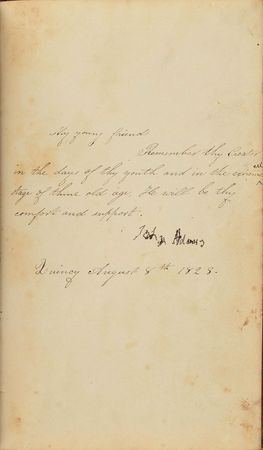 My young friend
Remember thy Creator
in the days of thy youth and in the extreme
stage of thine old age, He will be thy
comfort and support.
Adams
Quincy August 8th 1823.